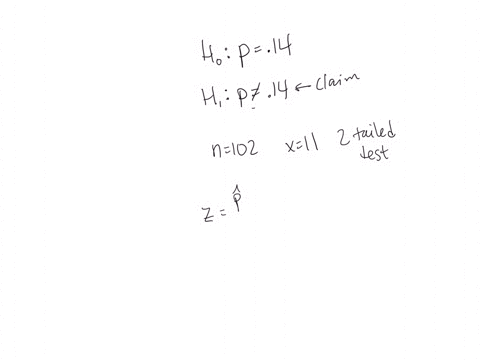 H₀: p=.14
H₁: p≠.14 ← claim
n=102 x=11 2 tailed test
z = p̂